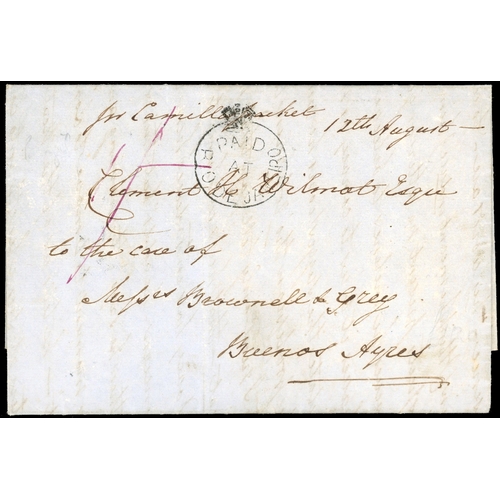 pr Camilla Packet
12th August
PAID
AT
RIO DE JANEIRO
Clement H Wilmot Esqre
to the care of
Messrs Brownell & Grey
Buenos Ayres